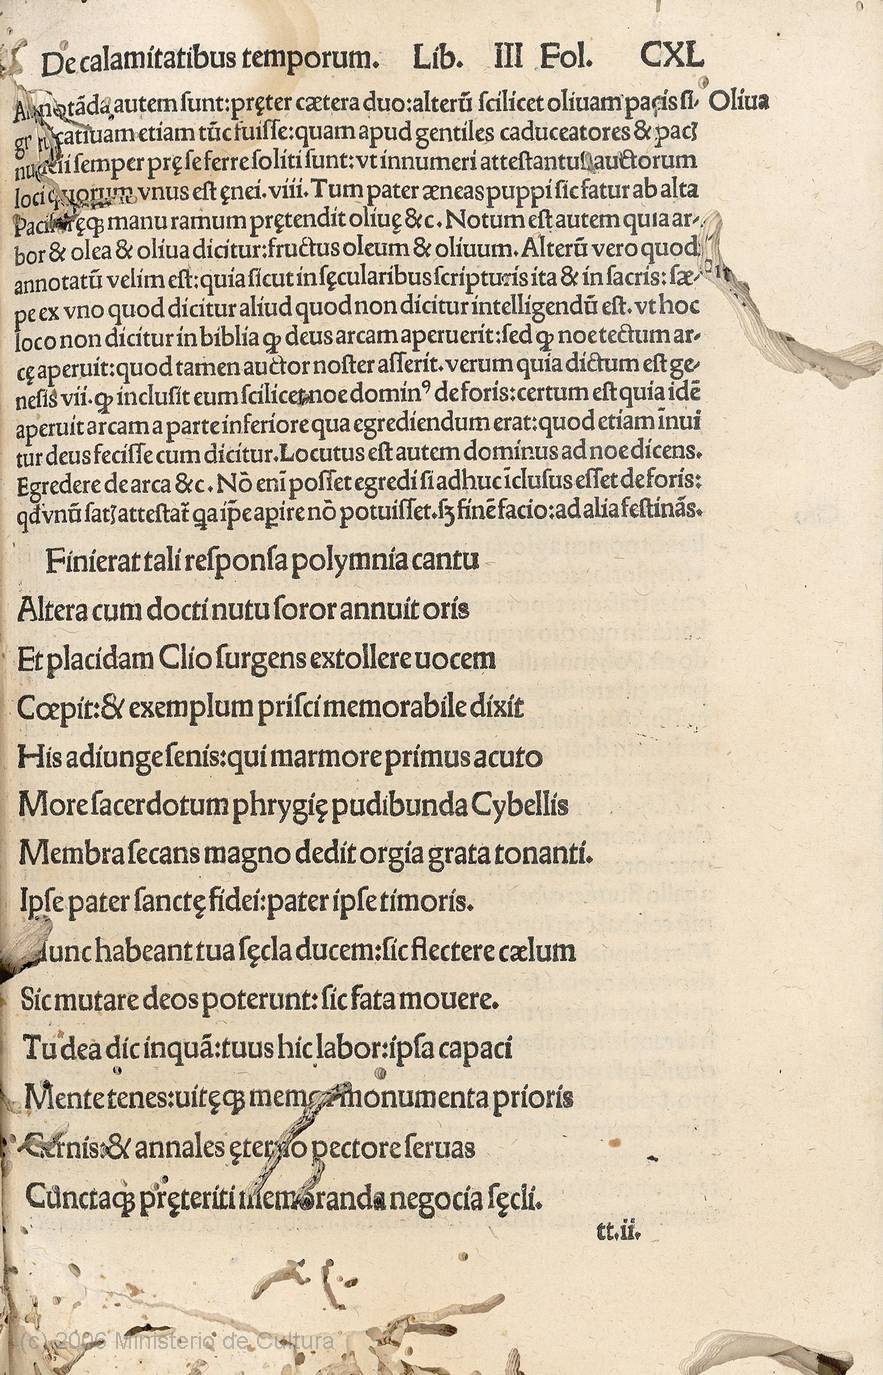 De calamitatibus temporum. Lib. III Fol. CXL
autem sunt:pręter cætera duo:alterū scilicet oliuam pacis si- Oliua
etiam tūc fuisse:quam apud gentiles caduceatores & pacꝭ
semper pręseferre soliti sunt:vt innumeri attestantur auctorum
loci quorum vnus est ęnei.viii.Tum pater æneas puppi sic fatur ab alta
manu ramum prętendit oliuę &c.Notum est autem quia ar-
bor & olea & oliua dicitur:fructus oleum & oliuum.Alterū vero quod
annotatū velim est:quia sicut in sęcularibus scripturis ita & in sacris:sæ-
pe ex vno quod dicitur aliud quod non dicitur intelligendū est.vt hoc
loco non dicitur in biblia ꝙ deus arcam aperuerit:sed ꝙ noe tectum ar-
cę aperuit:quod tamen auctor noster asserit.verum quia dictum est ge-
nesis vii.ꝙ inclusit eum scilicet noe dominꝰ deforis:certum est quia idē
aperuit arcam a parte inferiore qua egrediendum erat:quod etiam īnui
tur deus fecisse cum dicitur.Locutus est autem dominus ad noe dicens.
Egredere de arca &c.Nō enī posset egredi si adhuc īclusus esset deforis:
qđ vnū satꝭ attestat̄ qa ip̄e apire nō potuisset.sꝫ finē facio:ad alia festinās.
Finierat tali responsa polymnia cantu
Altera cum docti nutu soror annuit oris
Et placidam Clio surgens extollere uocem
Cœpit:& exemplum prisci memorabile dixit
His adiunge senis:qui marmore primus acuto
More sacerdotum phrygię pudibunda Cybellis
Membra secans magno dedit orgia grata tonanti.
Ipse pater sanctę fidei:pater ipse timoris.
Hunc habeant tua sęcla ducem:sic flectere cælum
Sic mutare deos poterunt:sic fata mouere.
Tu dea dic inquā:tuus hic labor:ipsa capaci
Mente tenes:uitęꝙ memor monumenta prioris
Cernis:& annales ęterno pectore seruas
Cūnctaꝙ pręteriti memoranda negocia sęcli.
tt.ii.
(c) 2006 Ministerio de Cultura